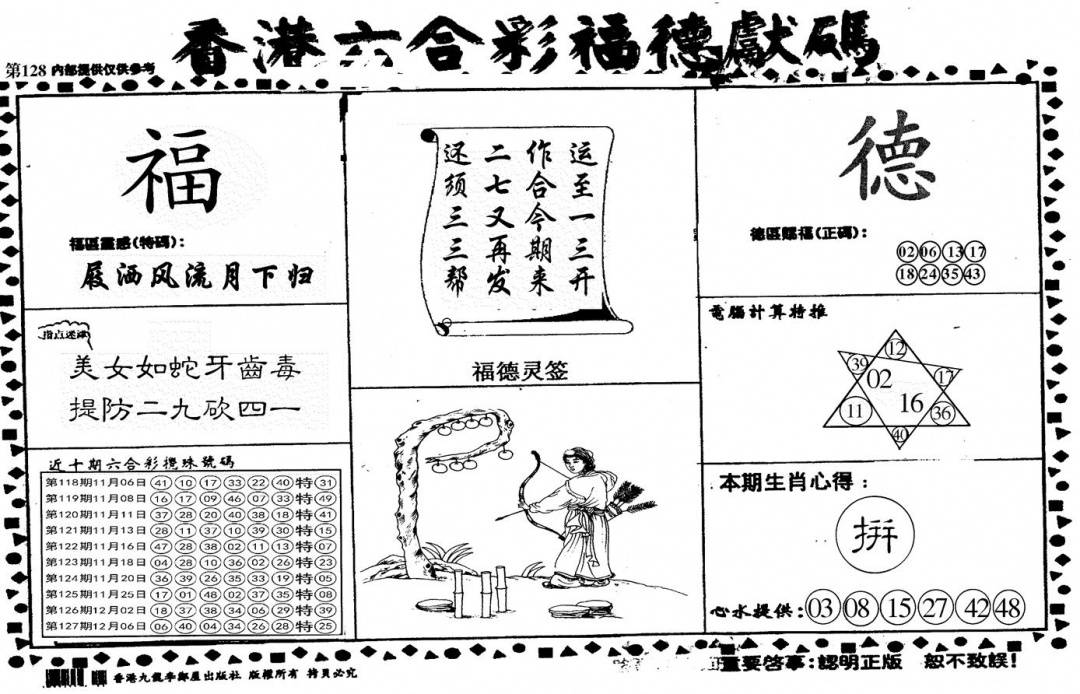 香港六合彩福德獻碼
第128 内部提供仅供参考
福
福區靈感(特碼):
屐洒风流月下归
指点迷津
美女如蛇牙齒毒
提防二九砍四一
近十期六合彩攪珠號碼
第118期11月06日 41 10 17 33 22 40 特 31
第119期11月08日 16 17 09 46 07 33 特 49
第120期11月11日 37 28 20 40 38 18 特 41
第121期11月13日 28 11 37 10 39 30 特 15
第122期11月16日 47 28 38 02 11 13 特 07
第123期11月18日 04 28 10 36 02 26 特 23
第124期11月20日 36 39 26 35 33 19 特 05
第125期11月25日 17 01 48 02 37 35 特 08
第126期12月02日 18 37 38 34 06 29 特 39
第127期12月06日 06 40 04 34 26 28 特 25
运至一三开
作合今期来
二七又再发
还须三三帮
福德灵签
德
德區賜福(正碼):
02 06 13 17
18 24 35 43
電腦計算特推
12
39 02 17
11 16 36
40
本期生肖心得:
拼
心水提供:03 08 15 27 42 48
香港九龍李鄭屋出版社 版權所有 拷貝必究
重要啓事:認明正版 恕不致誤!